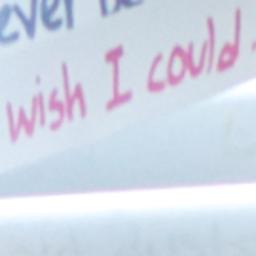 ever
wish I could.